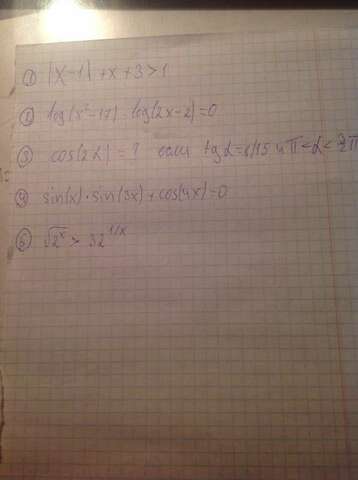 ① |x-1|+x+3>1
② log(x²-17)-log(2x-2)=0
③ cos(2α)=? если tgα=8/15 и π<α<3π
④ sin(x)·sin(3x)+cos(4x)=0
⑤ √2ˣ > 32^1/x